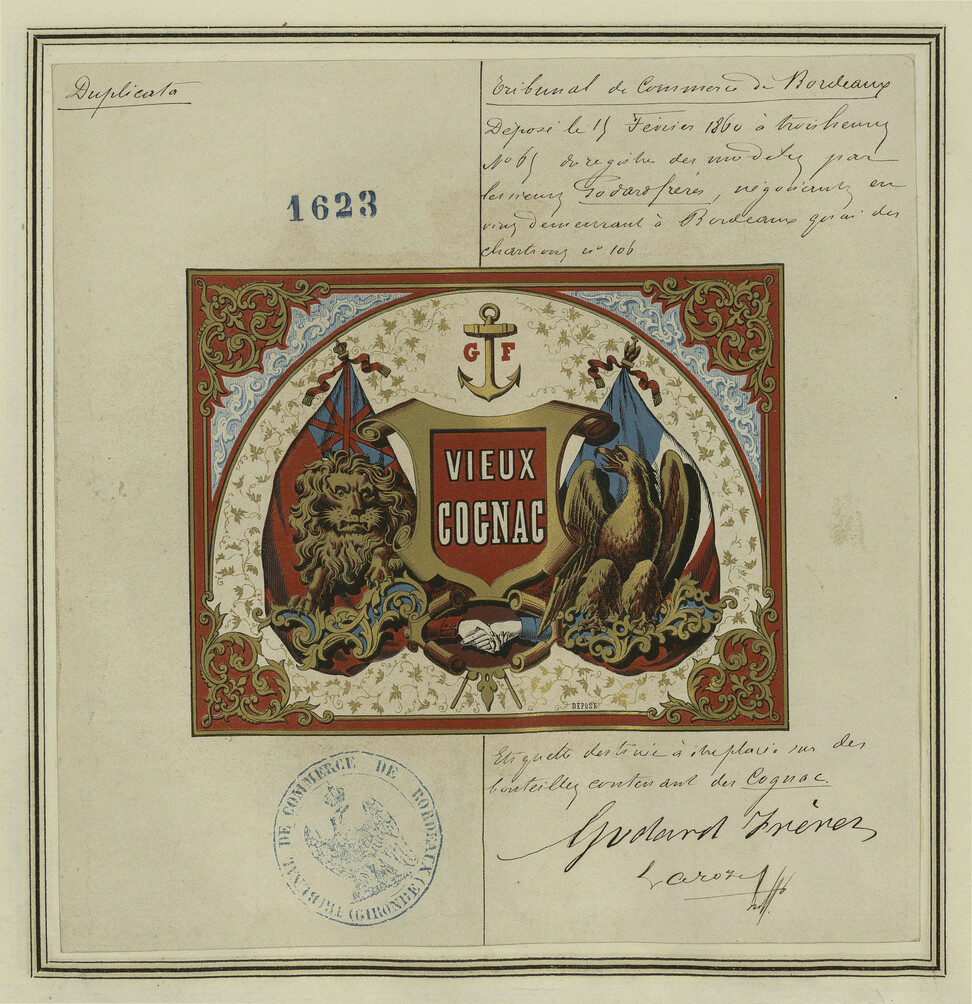 Duplicata
1623
Tribunal de Commerce de Bordeaux
Déposé le 15 Février 1860 à trois heures
No 65 du registre des modeles par
les sieurs Godard frères, négociants en
vins demeurant à Bordeaux quai des
chartrons no 106
G F
VIEUX
COGNAC
DEPOSE
Etiquette destinée à être placée sur des
bouteilles contenant du Cognac.
Godard Frères
TRIBUNAL DE COMMERCE DE BORDEAUX (GIRONDE)